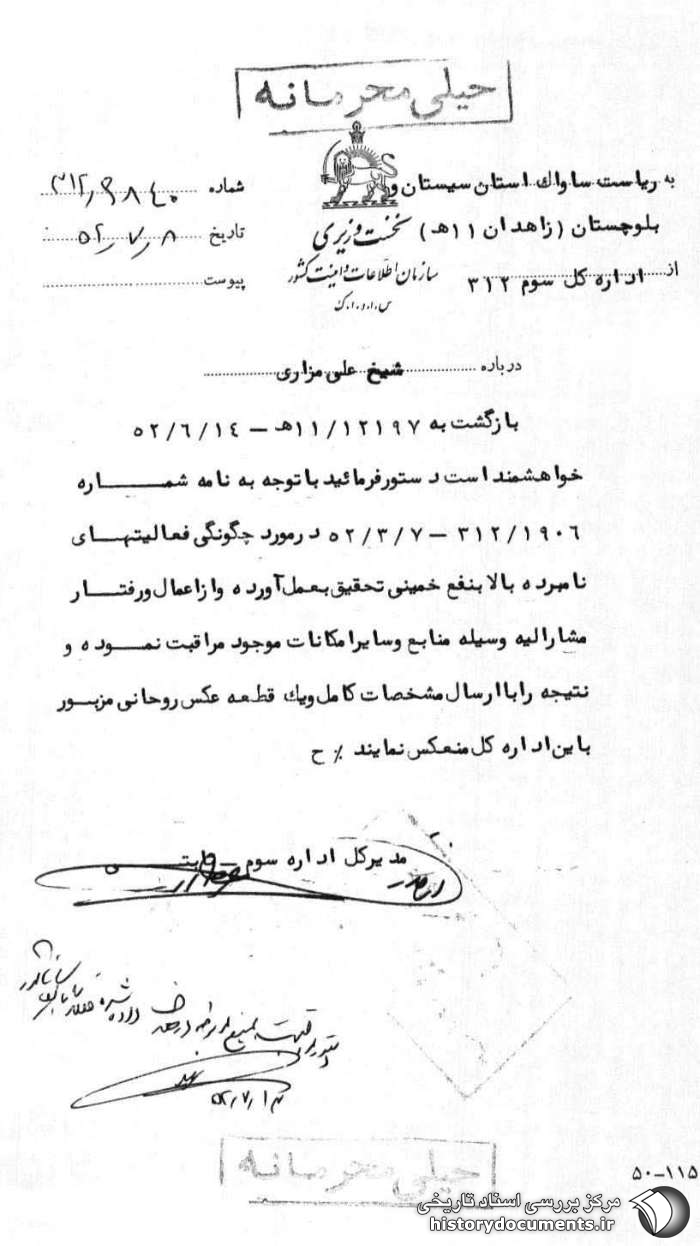 خیلی محرمانه
به ریاست ساواک استان سیستان و
بلوچستان (زاهدان ۱۱ه)
از اداره کل سوم ۳۱۲
نخست وزیری
سازمان اطلاعات و امنیت کشور
س.ا.و.ا.ک
شماره ۳۱۲٫۹۸۴۰
تاریخ ۵۲٫۷٫۸
پیوست
درباره شیخ علی مزاری
بازگشت به ۱۱/۱۲۱۹۷ه – ۵۲/۶/۱۴
خواهشمند است دستور فرمائید با توجه به نامه شماره
۳۱۲/۱۹۰۶ – ۵۲/۳/۷ در مورد چگونگی فعالیتهای
نامبرده بالا بنفع خمینی تحقیق بعمل آورده و از اعمال و رفتار
مشارالیه وسیله منابع و سایر امکانات موجود مراقبت نموده و
نتیجه را با ارسال مشخصات کامل و یک قطعه عکس روحانی مزبور
باین اداره کل منعکس نمایند ٪ ح
مدیر کل اداره سوم – ثابتی
خیلی محرمانه
۵۰-۱۱۵
مرکز بررسی اسناد تاریخی
historydocuments.ir